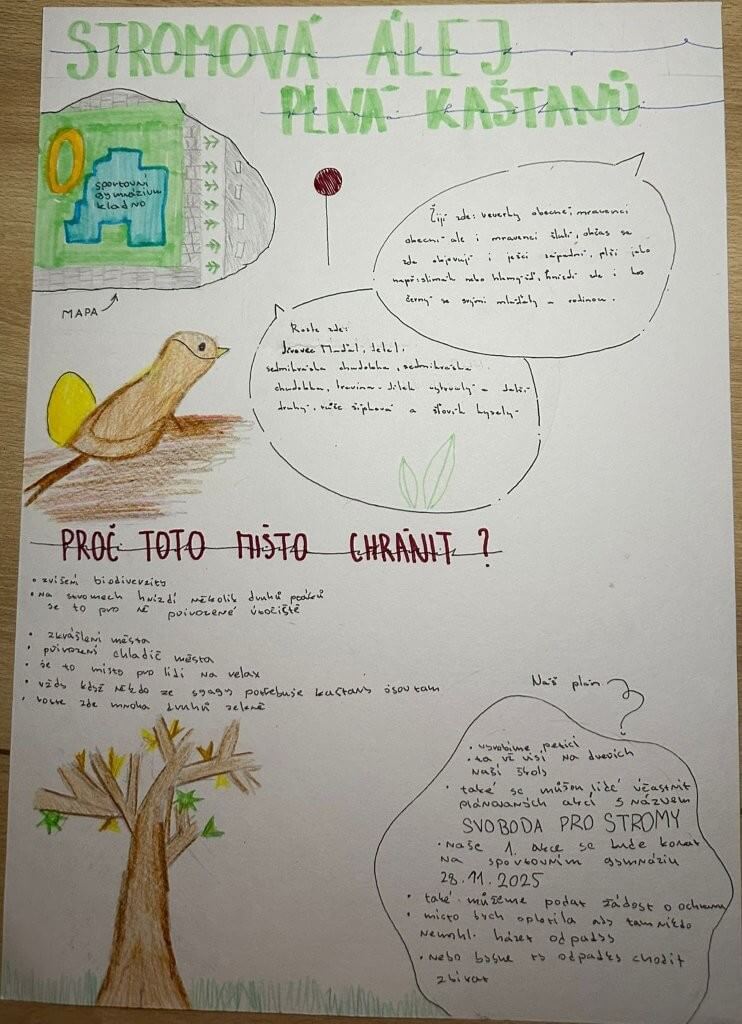 STROMOVÁ ÁLEJ
PLNÁ KAŠTANŮ
sportovní
gymnázium
kladno
MAPA
Žijí zde: veverky obecné, mravenci
obecní ale i mravenci žlutí, občas se
zde objevují i ježci západní, plži jako
např. slimák nebo hlemýžď, hnízdí zde i kos
černý se svými mláďaty a rodinou.
Roste zde:
Jírovec Maďal, jetel,
sedmikráska chudobka, sedmikráska
chudobka, travina - jílek vytrvalý a další
druhy, růže šípková a šťovík kyselý
PROČ TOTO MÍSTO CHRÁNIT ?
• zvíšení biodiverzity
• na stromech hnízdí několik druhů ptáků
je to pro ně přirozené útočiště
• zkrášlení města
• přirozený chladič města
• je to místo pro lidi na relax
• vždy když někdo ze sgagy potřebuje kaštany jsou tam
• roste zde mnoha druhů zeleně
Náš plán
• vyrobíme petici
• ta už visí na dveřích
naší školy
• také se můžou lidé účastnit
plánovaných akcí s názvem
SVOBODA PRO STROMY
• naše 1. akce se bude konat
na sportovním gymnáziu
28.11.2025
• také můžeme podat žádost o ochranu
• místo bych oplotila aby tam nikdo
nemohl házet odpadky
• nebo bysme ty odpadky chodit
zbírat